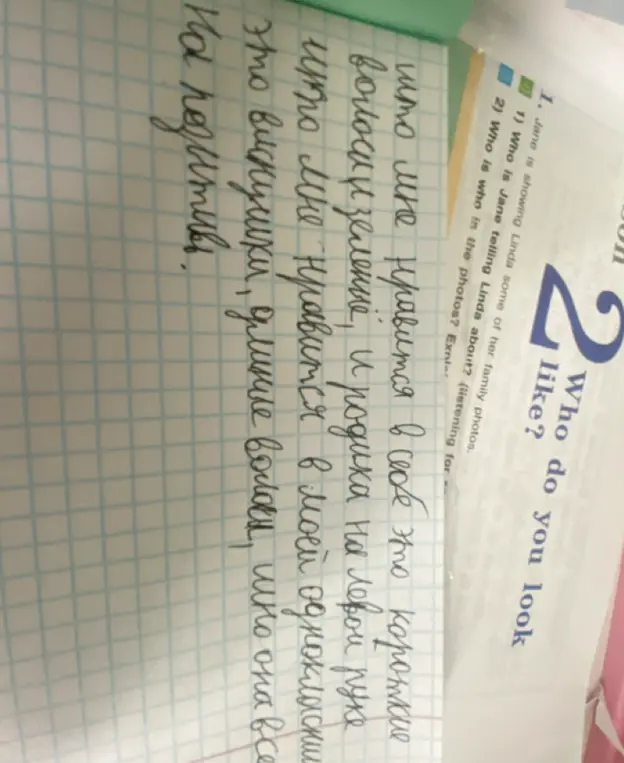 son
2 Who do you look
like?
1. Jane is showing Linda some of her family photos.
1) Who is Jane telling Linda about? (listening for
2) Who is who in the photos?
што мне нравится в себе это короткие
волосы, зеленые, и родика на левой руке
што мне нравится в моей одноклассни
это виснушки, длиные волосы, што она все
на позитиве.